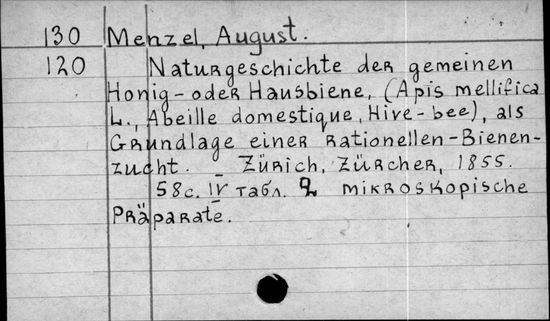 130 Menzel, August.
120 Naturgeschichte der gemeinen
Honig-oder Hausbiene, (Apis mellifica
L., Abeille domestique, Hive-bee), als
Grundlage einer rationellen-Bienen-
zucht. _ Zürich, Zürcher, 1855.
58c. IV табл. 2 mikroskopische
Präparate.